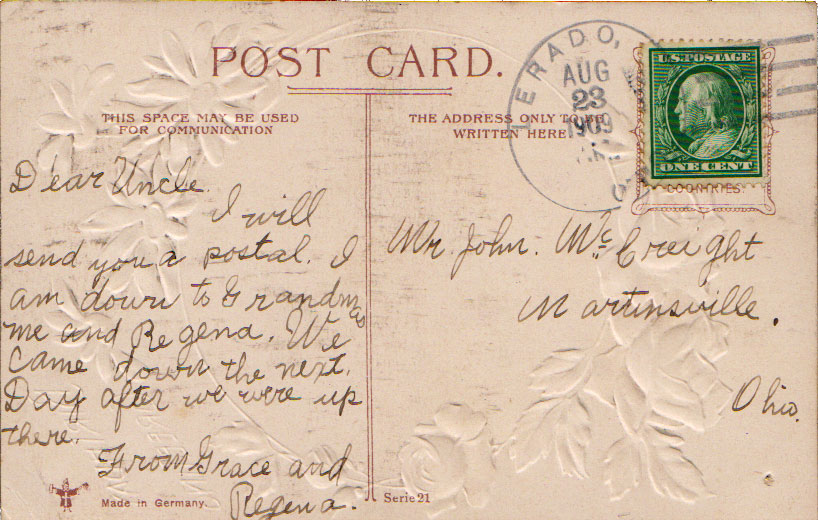 POST CARD.
THIS SPACE MAY BE USED
FOR COMMUNICATION
THE ADDRESS ONLY TO BE
WRITTEN HERE
LERADO,
AUG
23
1909
O.
U.S. POSTAGE
ONE CENT
COUNTRIES
Dear Uncle.
I will
send you a postal. I
am down to Grandmas
me and Regena. We
came down the next.
Day after we were up
there.
From Grace and
Regena.
Mr. John. Mc Creight
Martinsville.
Ohio.
Made in Germany.
Serie 21